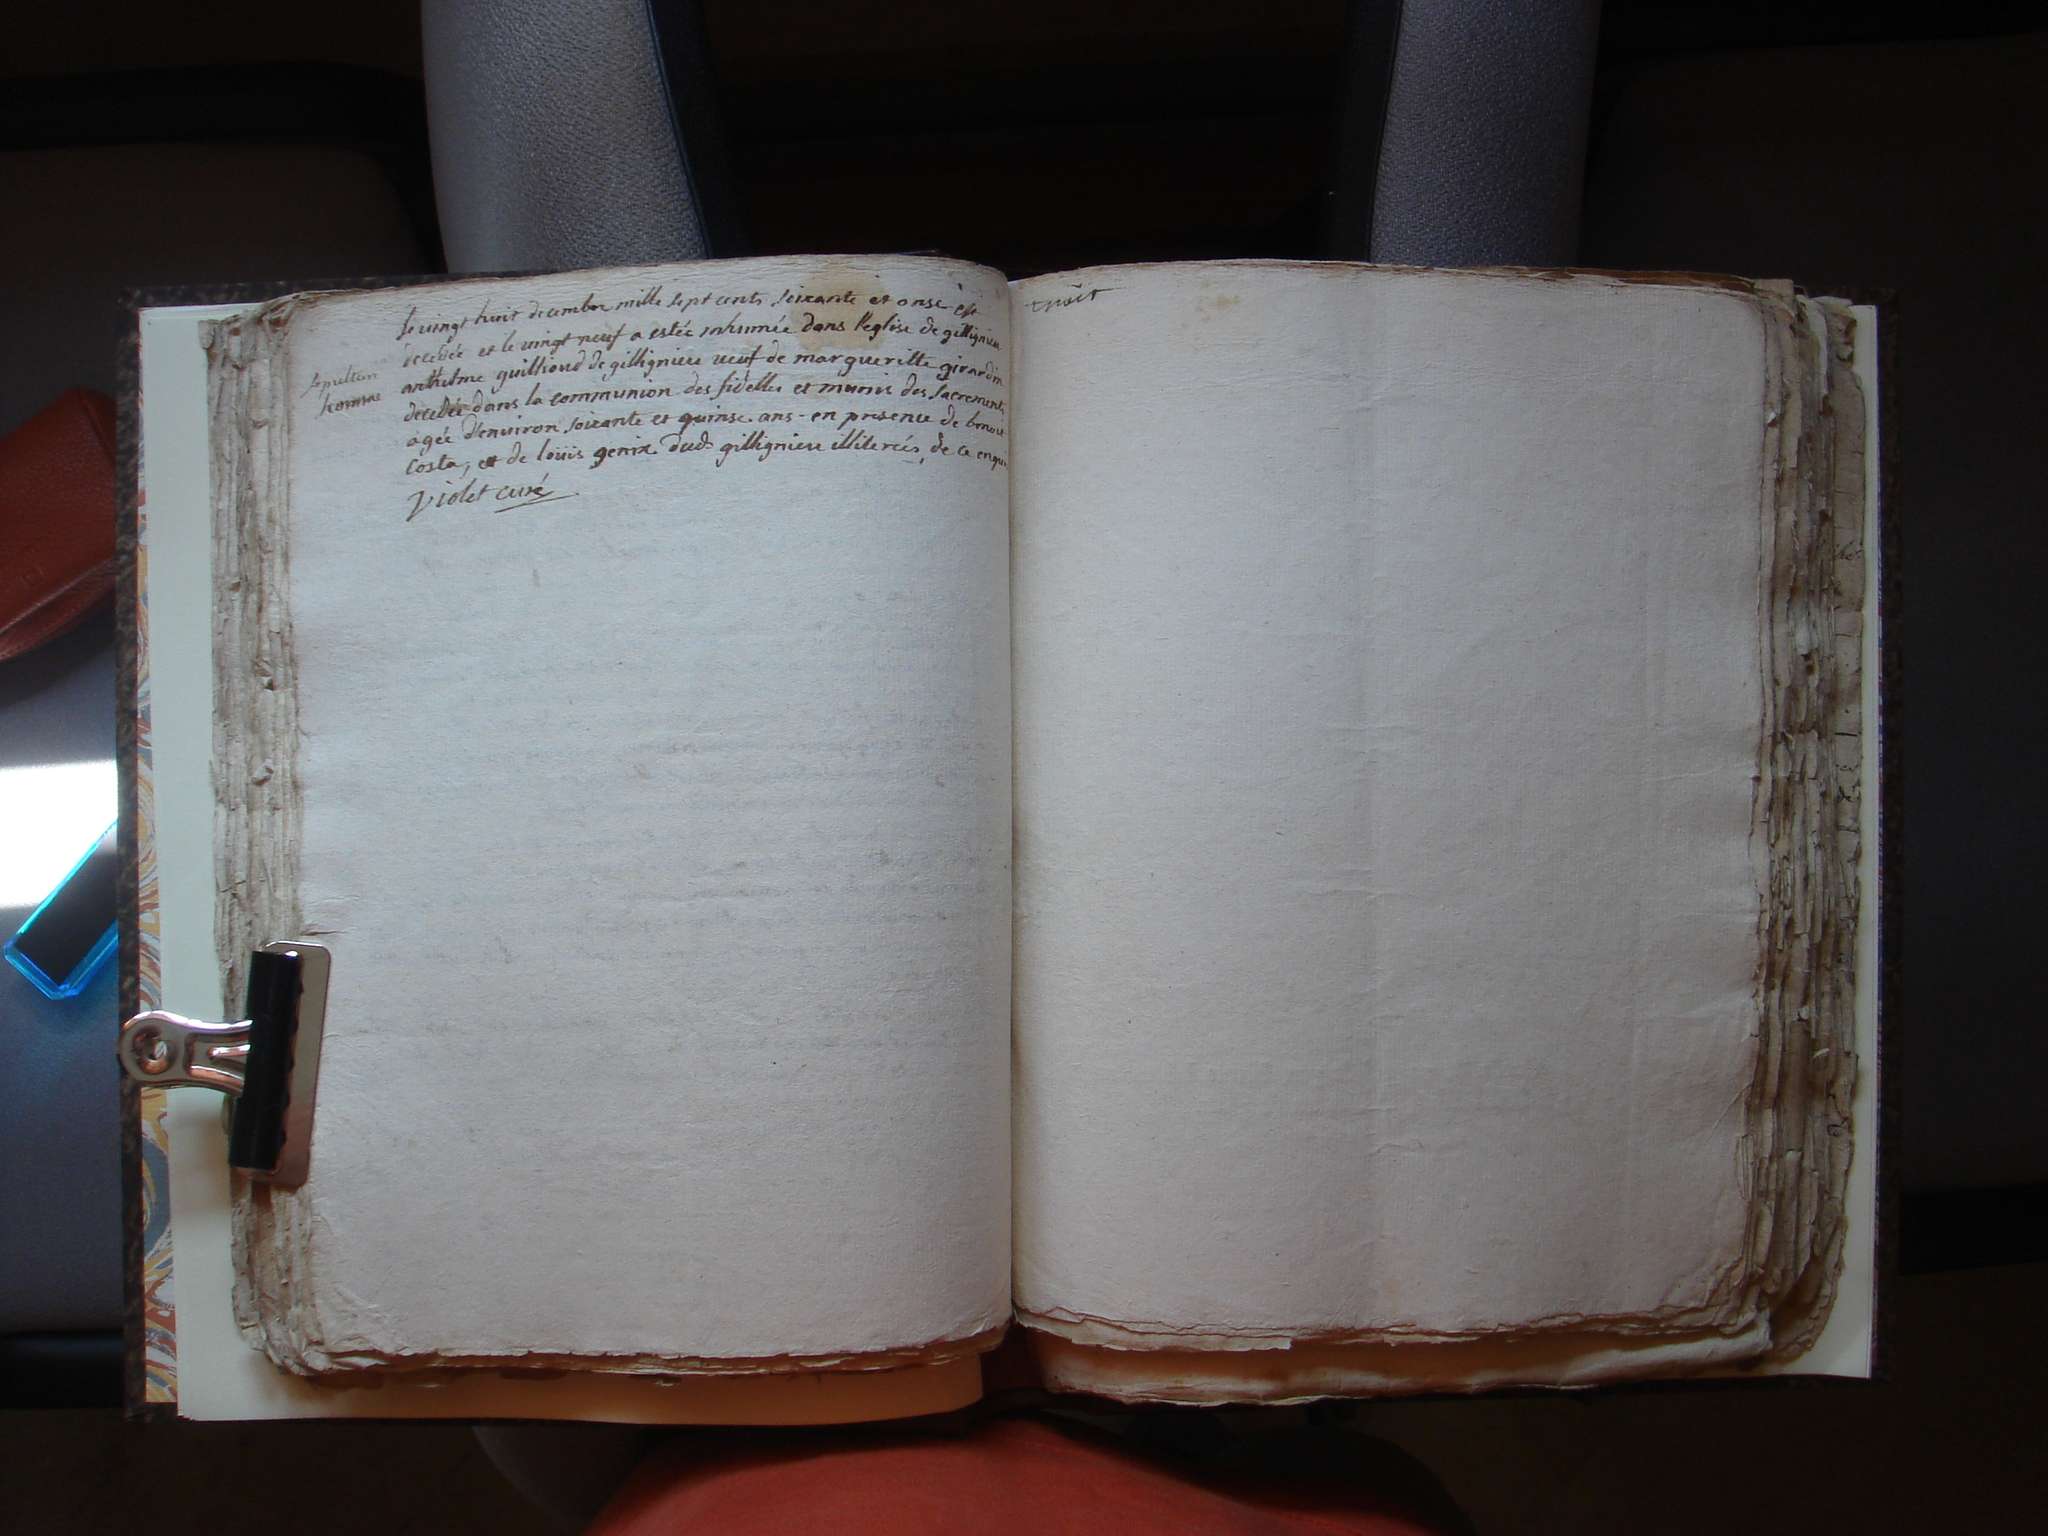 le vingt huit decembre mille sept cents soixante et onse est
decedée et le vingt neuf a estée inhumée dans l'eglise de gillignieu
sepulture
anthelme guilliond de gillignieu veuf de margueritte girardin
homme
decedée dans la communion des fidelles et munis des sacrements
agée d'environ soixante et quinse ans - en presence de benoit
costa, et de loüis genix dud. gillignieu illiterés, de ce enquis
Violet curé